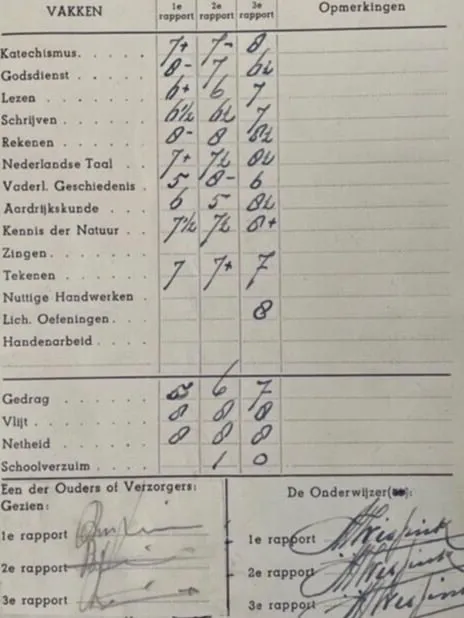 VAKKEN 1e rapport 2e rapport 3e rapport Opmerkingen
Katechismus. . . . . 7+ 7- 8
Godsdienst . . . . . 8- 7 6½
Lezen . . . . . . . 6+ 6 7
Schrijven . . . . . . 6½ 6½ 7
Rekenen . . . . . . 8- 8 8½
Nederlandse Taal . . 7+ 7½ 8½
Vaderl. Geschiedenis . 5 8- 6
Aardrijkskunde . . . 6 5 8½
Kennis der Natuur . . 7½ 7½ 8+
Zingen. . . . . . .
Tekenen . . . . . . 7 7+ 7
Nuttige Handwerken .
Lich. Oefeningen. . . 8
Handenarbeid . . . .
Gedrag . . . . . . 5 6 7
Vlijt . . . . . . . 8 8 8
Netheid . . . . . . 8 8 8
Schoolverzuim . . . . 1 0
Een der Ouders of Verzorgers:
Gezien:
1e rapport
2e rapport
3e rapport
De Onderwijzer(es):
1e rapport
2e rapport
3e rapport